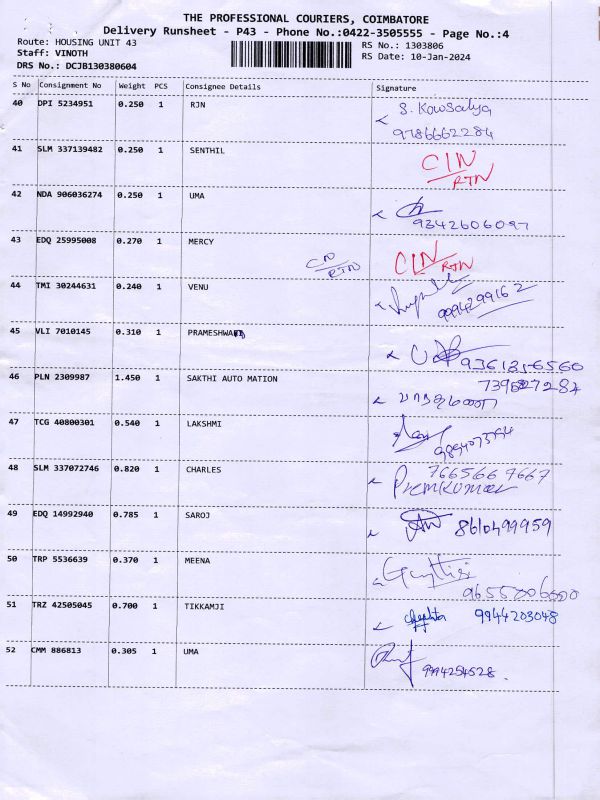 THE PROFESSIONAL COURIERS, COIMBATORE
Delivery Runsheet - P43 - Phone No.:0422-3505555 - Page No.:4
Route: HOUSING UNIT 43
RS No.: 1303806
Staff: VINOTH
RS Date: 10-Jan-2024
DRS No.: DCJB130380604
S No Consignment No Weight PCS Consignee Details Signature
40 DPI 5234951 0.250 1 RJN S. Kowsalya
9786662284
41 SLM 337139482 0.250 1 SENTHIL CIN
RTN
42 NDA 906036274 0.250 1 UMA
9342606097
43 EDQ 25995008 0.270 1 MERCY CIN/RTN
CN/RTN
44 TMI 30244631 0.240 1 VENU
9994299162
45 VLI 7010145 0.310 1 PRAMESHWARI
46 PLN 2309987 1.450 1 SAKTHI AUTO MATION
47 TCG 40800301 0.540 1 LAKSHMI
48 SLM 337072746 0.820 1 CHARLES 7665667667
Premkumar
49 EDQ 14992940 0.785 1 SAROJ 8610499959
50 TRP 5536639 0.370 1 MEENA
9655006600
51 TRZ 42505045 0.700 1 TIKKAMJI 9944203048
52 CMM 886813 0.305 1 UMA
9994254528